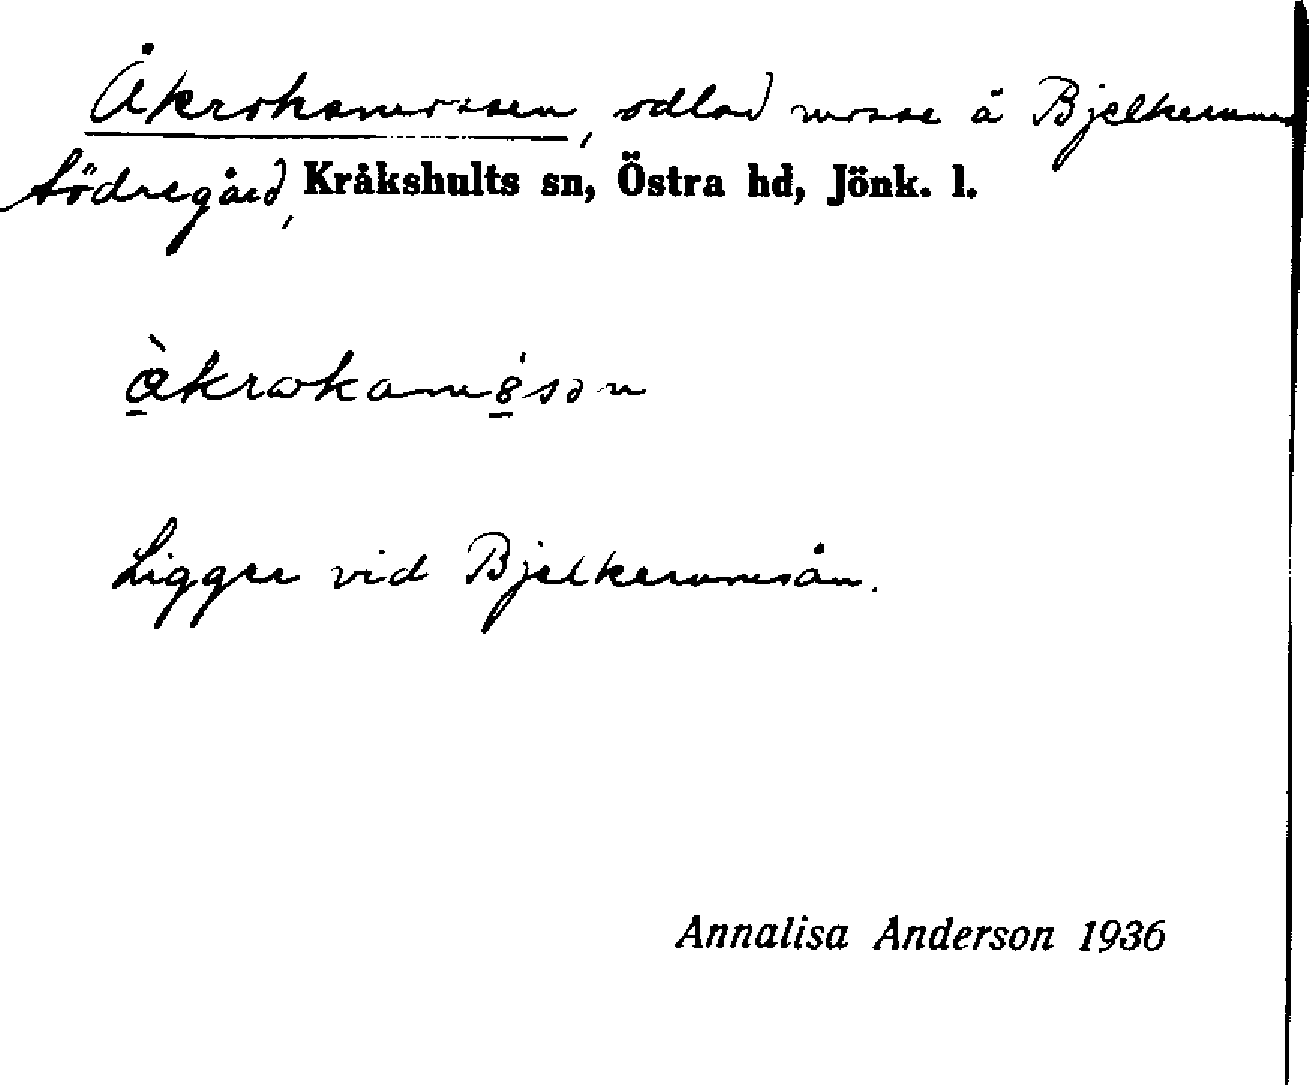 Åkroksmossen, odlad mosse å Bjelkerum
Södregård, Kråkshults sn, Östra hd, Jönk. l.
Ligger vid Bjelkerumsån.
Annalisa Anderson 1936